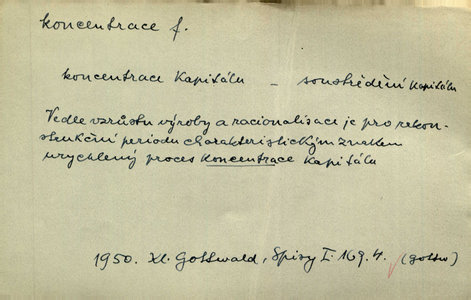 koncentrace f.
koncentrace kapitálu – soustředění kapitálu
Vedle vzrůstu výroby a racionalisace je pro rekon-
strukční periodu charakteristickým znakem
urychlený proces koncentrace kapitálu
1950. Kl. Gottwald, Spisy I. 169.4. (Gottw)